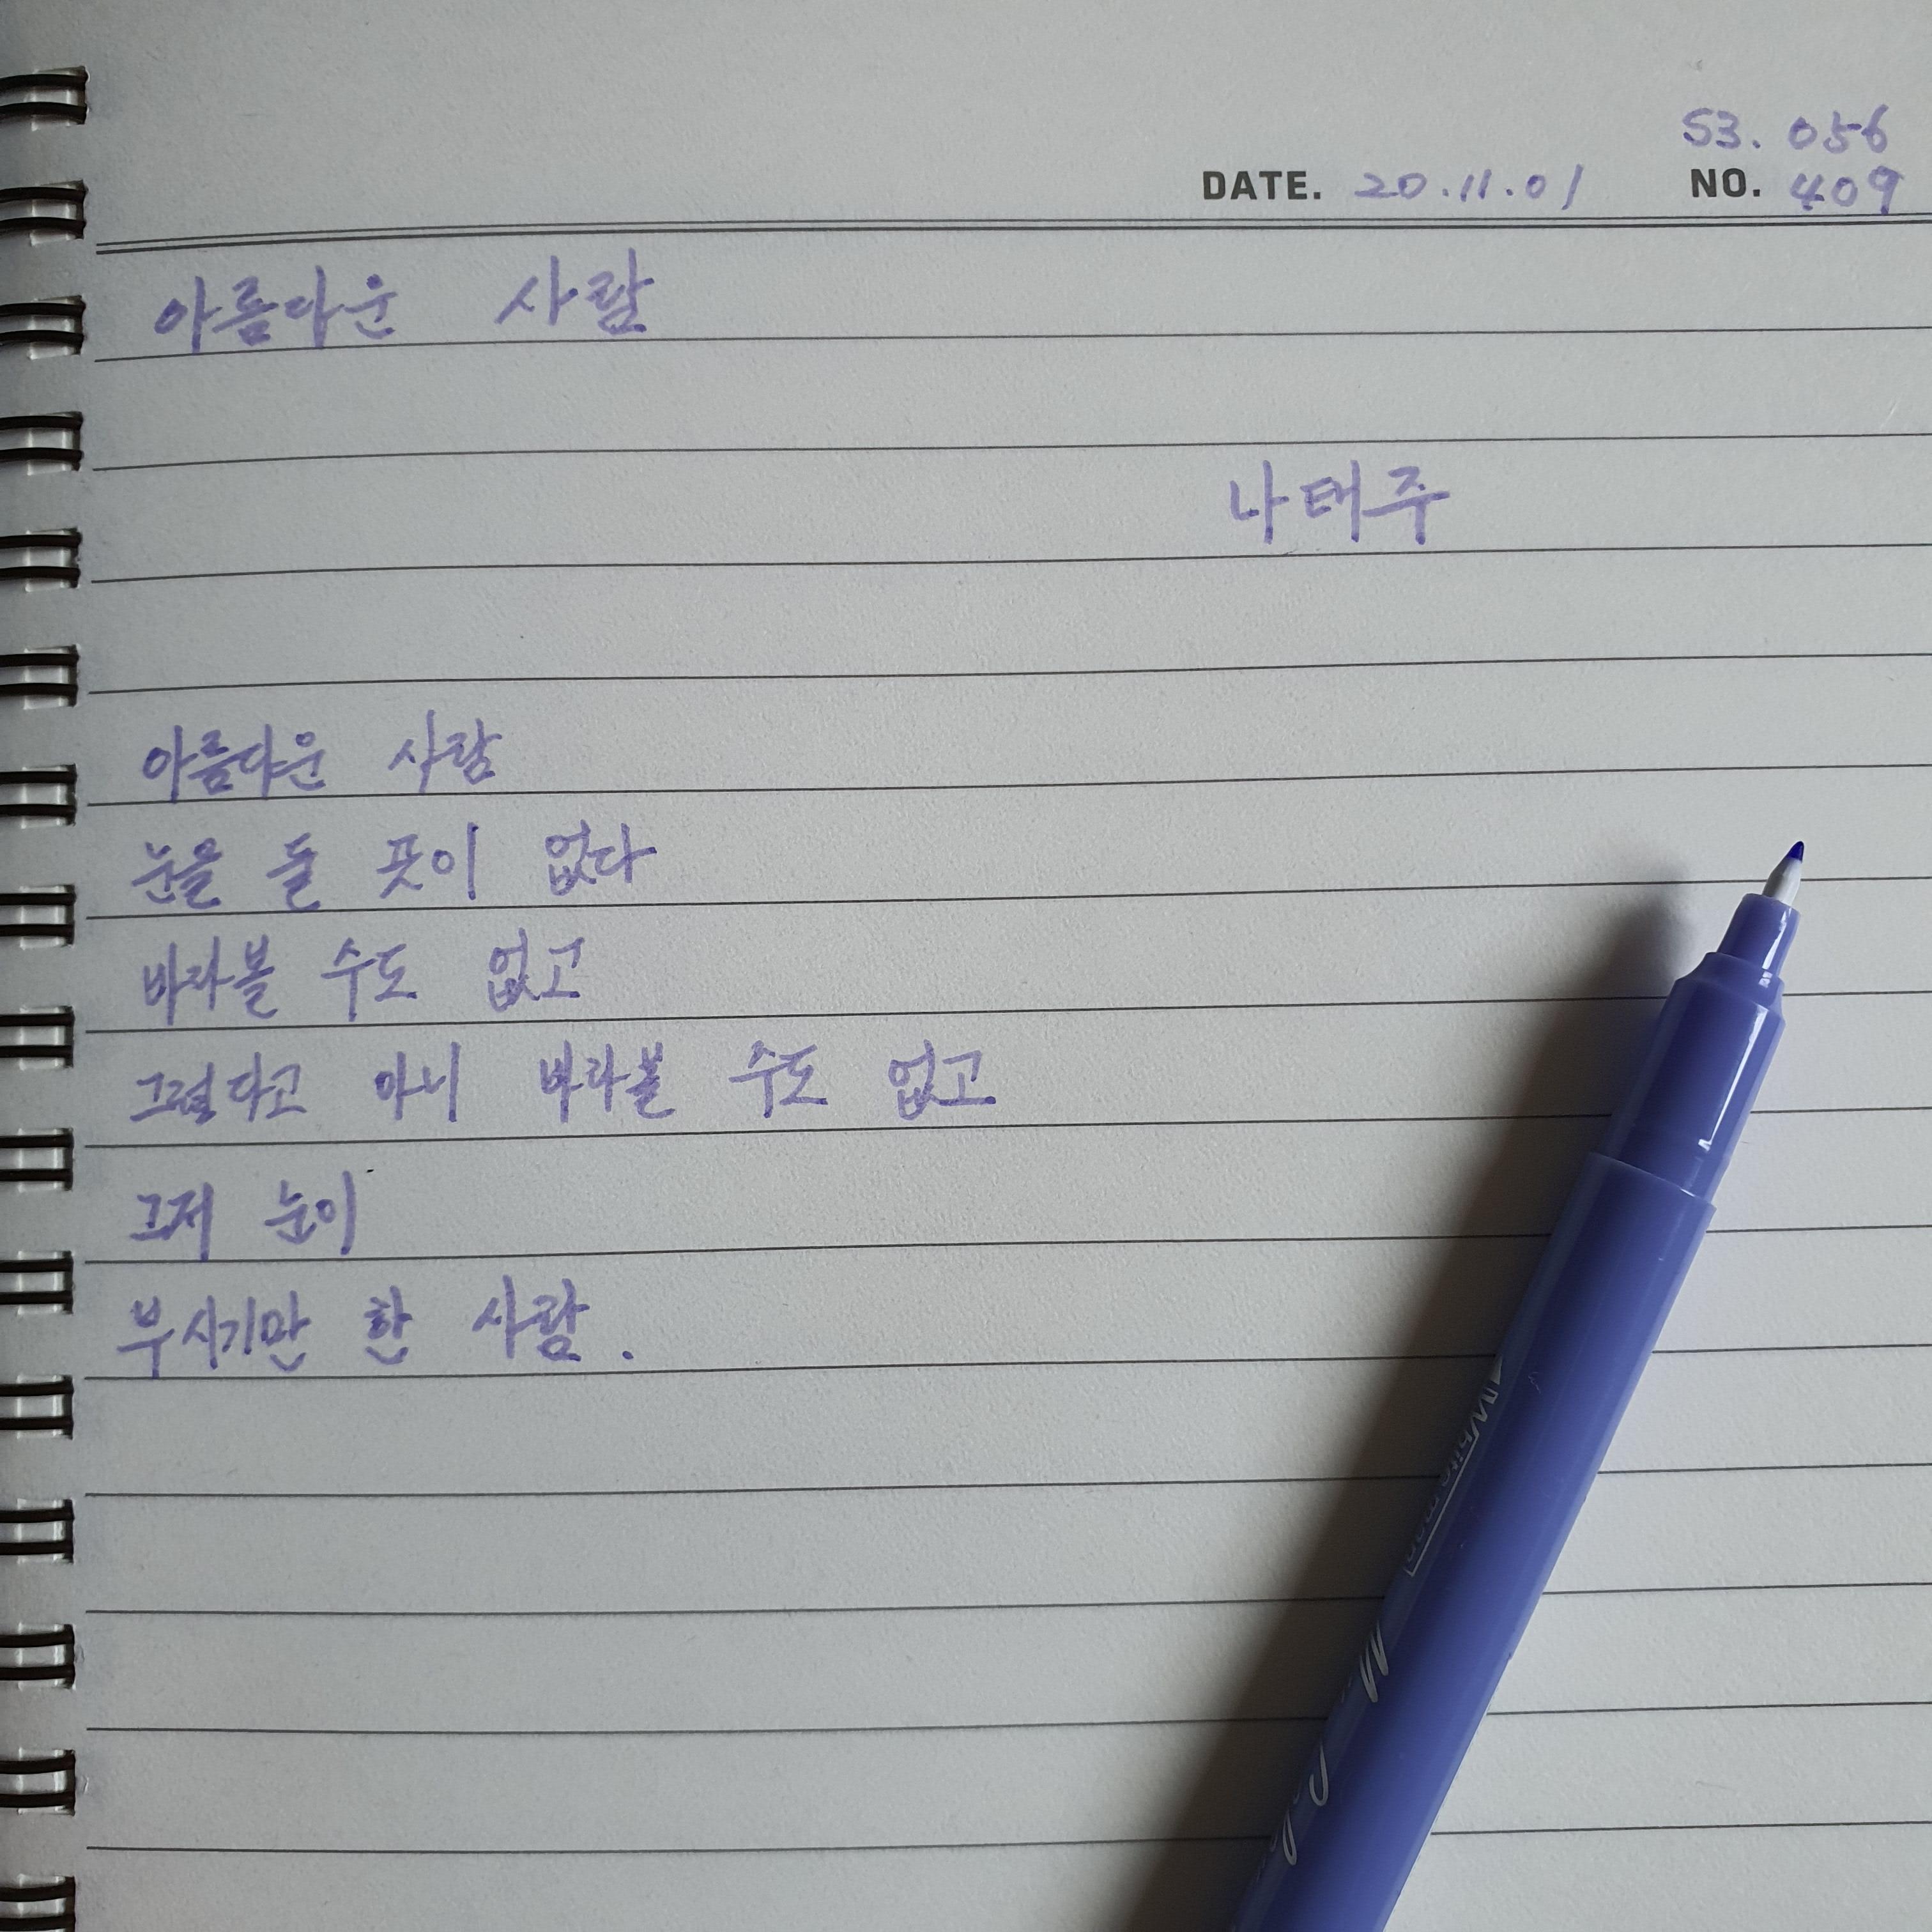 S3. 056
DATE. 20.11.01 NO. 409
아름다운 사람
나태주
아름다운 사람
눈을 둘 곳이 없다
바라볼 수도 없고
그렇다고 아니 바라볼 수도 없고
그저 눈이
부시기만 한 사람.